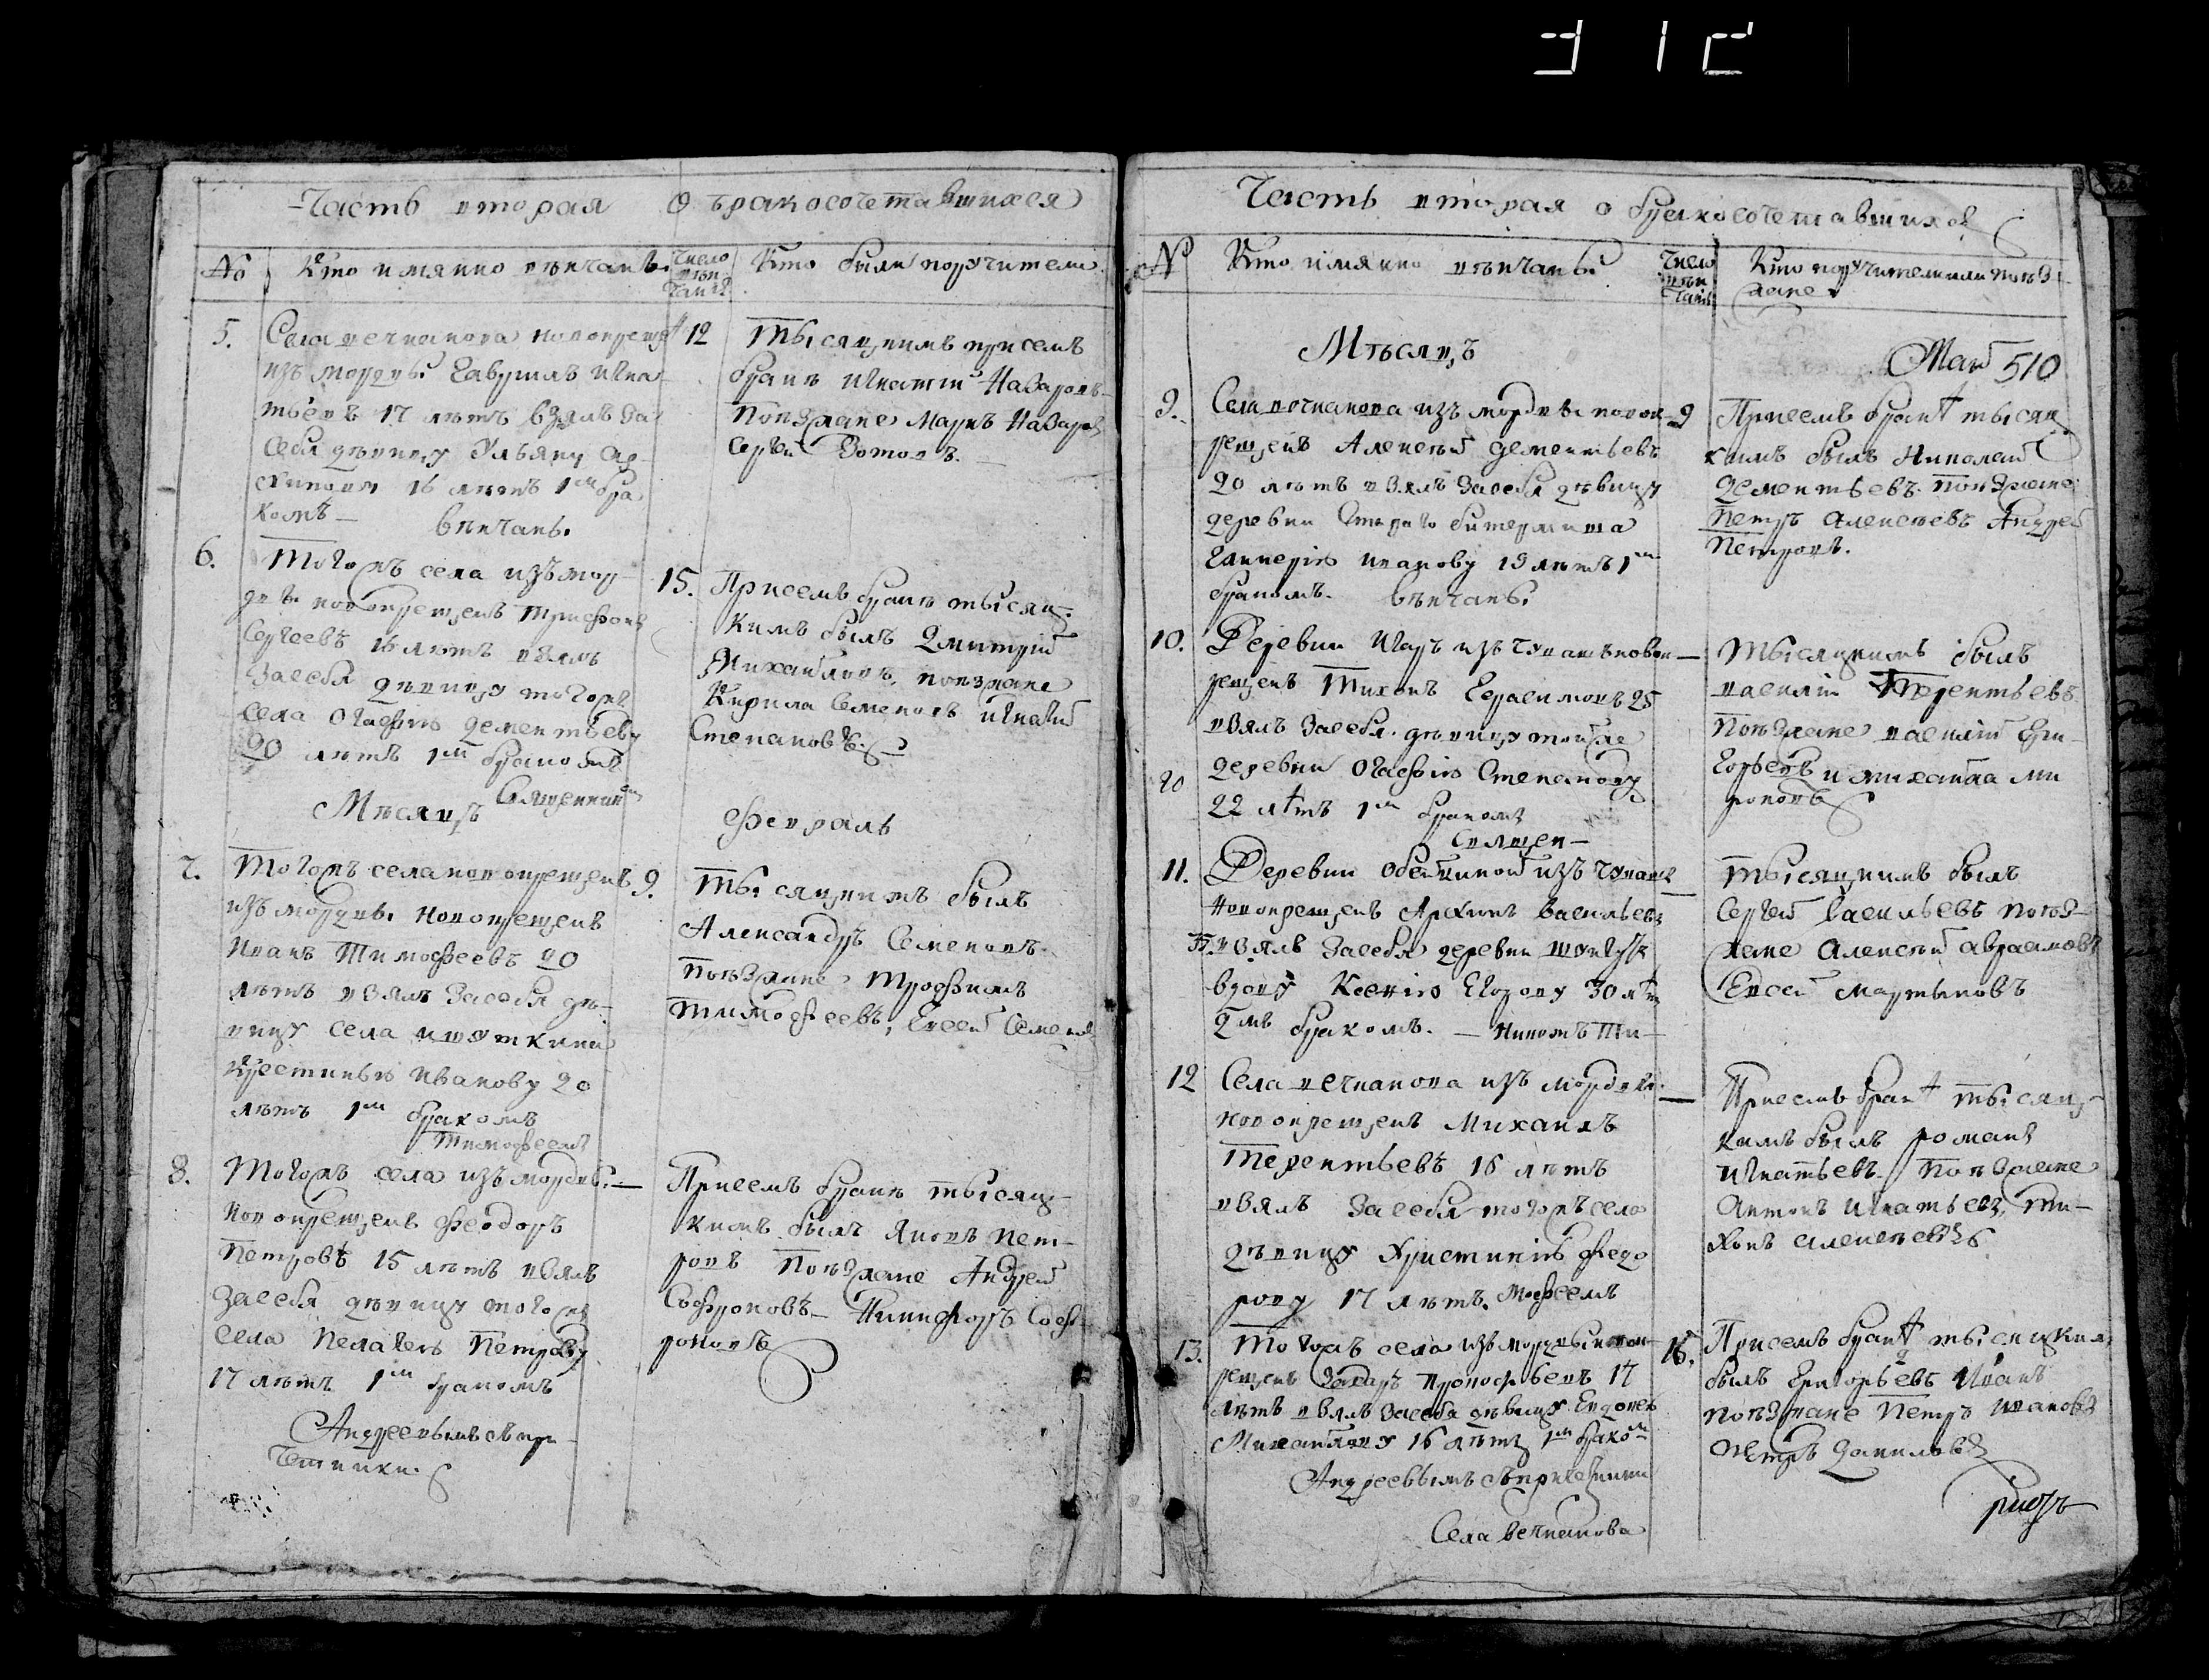 312
Часть вторая О бракосочетавшихся
№ Кто имянно венчанъ. Число венчания Кто были поручители
5. Села вечканова новокрещ 12
изъ мордвы Гаврилъ Игна-
тьевъ 17 летъ взялъ за
себя девицу Ульяну Ар-
хипову 16 летъ 1мъ бра
комъ — венчанъ.
Тысяцкимъ при семъ
браке Игнатий Назаровъ
Поезжане Маркъ Назаровъ
Сергей Зотовъ. —
6. Тогожъ села изъ мор-
двы новокрещенъ Трифонъ
Сергеевъ 16 летъ взялъ
засебя девицу тогожъ
села Огафию дементьеву
20 летъ 1мъ бракомъ
Священникомъ
15. Присемъ браке тысяц-
кимъ былъ Дмитрий
Михайловъ, поезжане
Кирила Семеновъ Игнатий
Степановъ.
Месяцъ Февраль
7. Тогожъ села новокрещенъ 9.
изъ мордвы новокрещенъ
Иванъ Тимофеевъ 20
летъ взялъ засебя де-
вицу села
Крестинью Иванову 20
летъ 1мъ бракомъ
Тимофеемъ
Тысяцкимъ былъ
Александръ Семеновъ.
Поезжане Трофимъ
Тимофеевъ, Евсей Семеновъ
8. Тогожъ села изъ мордвы. —
новокрещенъ Феодоръ
Петровъ 15 летъ взялъ
засебя девицу тогожъ
села Пелагею Петрову
17 летъ 1мъ бракомъ
Андреевымъ съ при-
четники.
Присемъ браке тысяц-
кимъ былъ Яковъ Пет-
ровъ Поезжане Андрей
Софроновъ — Никифоръ Соф-
роновъ
Часть вторая о бракосочетавшихся
№ Кто имянно венчанъ Число венчания Кто поручители или поез-
жане.
Мѣсяцъ Май 510
9. Села вечканова изъ мордвы новок- 9
рещенъ Алексей дементьевъ
20 летъ взялъ засебя девицу
деревни Стараго битермиша
Гликерию иванову 19 летъ 1мъ
бракомъ. венчанъ.
Присемъ браке тысяц
кимъ былъ Николай
Дементьевъ. поезжане
Петръ Алексеевъ Андрей
Петровъ.
10. Деревни изъ чувашъ новок —
рещенъ Тихонъ Герасимовъ 25
взялъ засебя девицу тойже
20 деревни Огафию Степанову
22 летъ 1мъ бракомъ
Священ —
Тысяцкимъ былъ
василий Терентьевъ
Поезжане василий Гри-
горьевъ и михайла ми
роновъ
11. Деревни изъ чувашъ —
новокрещенъ Архипъ Васильевъ
35. взялъ засебя деревни
вдову Ксению Егорову 30 летъ
2мъ бракомъ. — никомъ Ти —
Тысяцкимъ былъ
Сергей Васильевъ поез-
жане Алексей авраамовъ
Евсей мартыновъ
12 Села вечканова изъ мордвы —
новокрещенъ Михаилъ
Терентьевъ 16 летъ
взялъ засебя тогожъ села
девицу Христинию Федо
рову 17 летъ. мофеемъ
Присемъ браке тысяц-
кимъ былъ романъ
Игнатьевъ. Поезжане
Антонъ Игнатьевъ, Ти-
хонъ алексеевъ
13. Тогожъ села изъ мордвы новок- 16.
рещенъ Захаръ Прокофьевъ 17
летъ взялъ засебя девицу Евдокею
Михайлову 16 летъ 1мъ бракомъ
Андреевымъ съ причетники
Села Вечканова
Присемъ браке тысяцкимъ
былъ Григорьевъ Иванъ
поезжане Петръ Ивановъ
Петръ Даниловъ